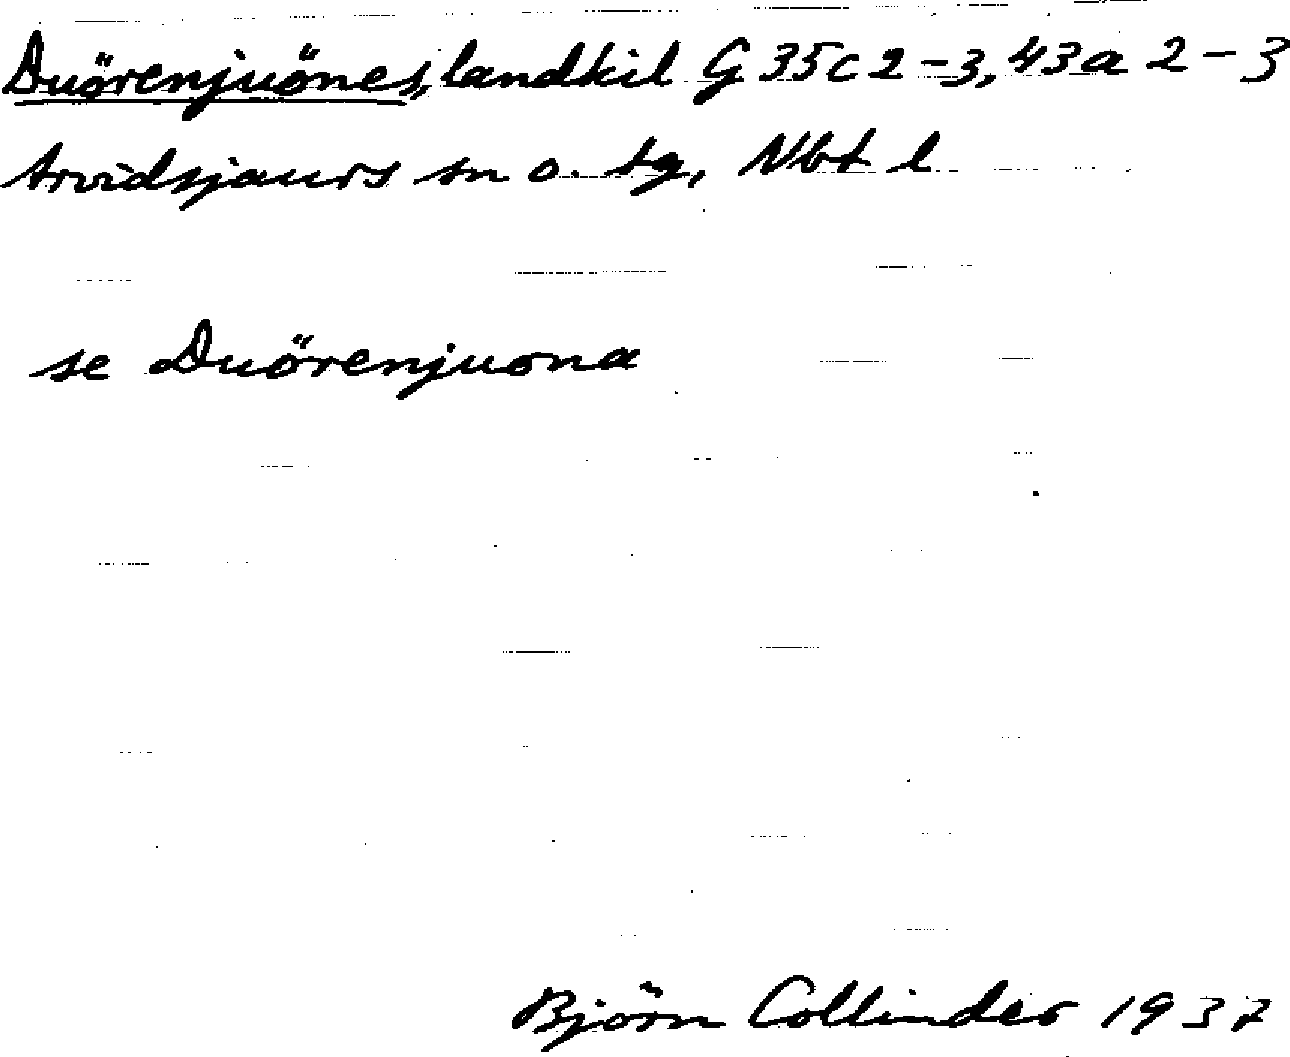 Duörenjuönes, landkil G 35c 2-3, 43a 2-3
Arvidsjaurs sn o. tg, Nbt l
se Duörenjuona
Björn Collinder 1937